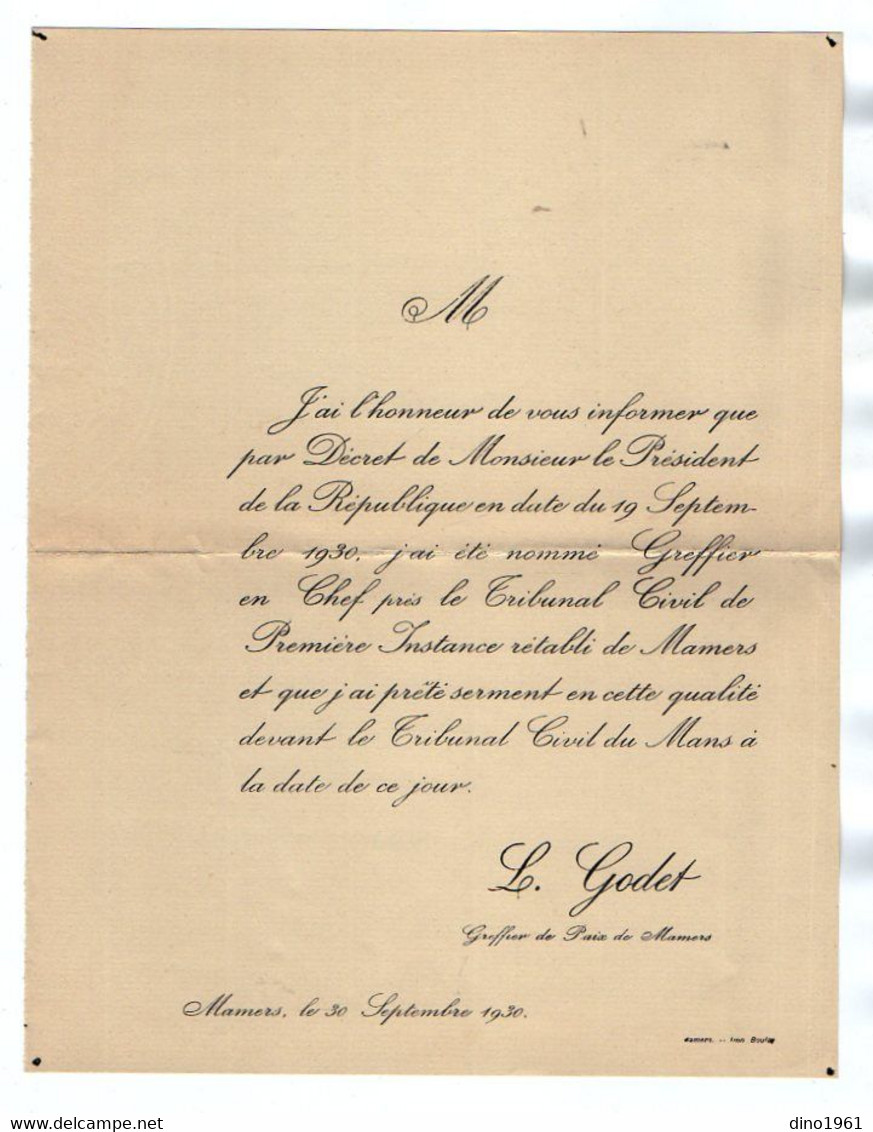 M
J'ai l'honneur de vous informer que
par Décret de Monsieur le Président
de la République en date du 19 Septem-
bre 1930, j'ai été nommé Greffier
en Chef près le Tribunal Civil de
Première Instance rétabli de Mamers
et que j'ai prêté serment en cette qualité
devant le Tribunal Civil du Mans à
la date de ce jour.
L. Godet
Greffier de Paix de Mamers
Mamers, le 30 Septembre 1930.
Mamers. -- Imp.
delcampe.net
dino1961